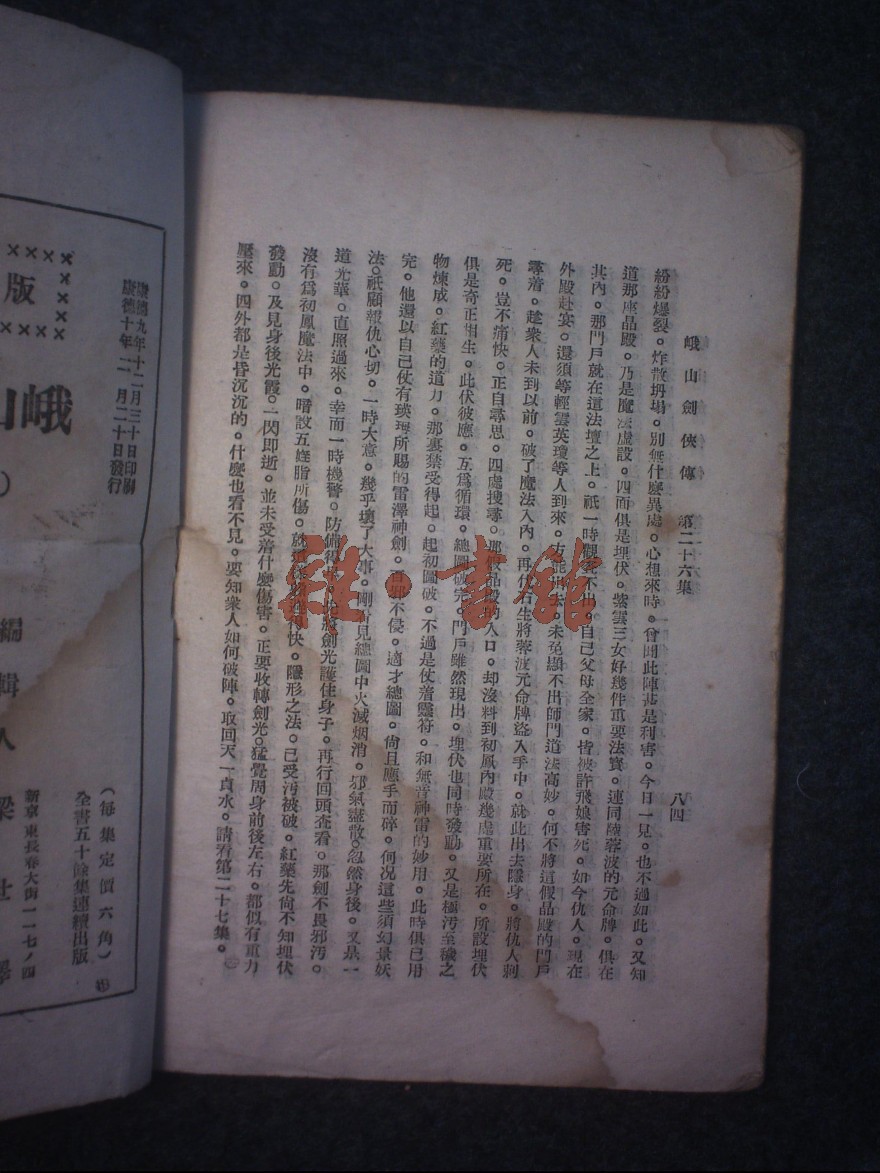 峨山劍俠傳　第二十六集
八四
紛紛爆裂。炸散坍塌。別無什麼異處。心想來時。曾聞此陣甚是利害。今日一見。也不過如此。又知
道那座晶殿。乃是魔法虛設。四面俱是埋伏。紫雲三女好幾件重要法寶。連同陸蓉波的元命牌。俱在
其內。那門戶就在這法壇之上。祇一時觀察不出。自己父母全家。皆被許飛娘害死。如今仇人。現在
外殿赴宴。還須等輕雲英瓊等人到來。方能出去。未免顯不出師門道法高妙。何不將這假晶殿的門戶
尋着。趁衆人未到以前。破了魔法入內。再代石生將蓉波元命牌盜入手中。就此出去隱身。將仇人刺
死。豈不痛快。正自尋思。四處搜尋。那假晶殿的入口。却沒料到初鳳內殿幾處重要所在。所設埋伏
俱是奇正相生。此伏彼應。互爲循環。總圖破完。門戶雖然現出。埋伏也同時發動。又是極污至穢之
物煉成。紅藥的道力。那裏禁受得起。起初圖破。不過是仗着靈符。和無音神雷的妙用。此時俱已用
完。他還以自己仗有瑛瑯所賜的雷澤神劍。百邪不侵。適才總圖。尙且應手而碎。何况這些須幻景妖
法。祇顧報仇心切。一時大意。幾乎壞了大事。剛看見總圖中火滅烟消。邪氣盡散。忽然身後。又是一
道光華。直照過來。幸而一時機警。防備得早。先將劍光護住身子。再行回頭查看。那劍不畏邪污。
沒有爲初鳳魔法中。暗設五條脂所傷。就這樣收遲得快。隱形之法。已受污被破。紅藥先尙不知埋伏
發動。及見身後光霞。一閃即逝。並未受着什麼傷害。正要收轉劍光。猛覺周身前後左右。都似有重力
壓來。四外都是昏沉沉的。什麼也看不見。要知衆人如何破陣。取回天一貞水。請看第二十七集。
雜·書館
版
康德九年十二月三十日印刷
康德十年二月二十日發行
峨山
編輯人
梁世
（每集定價六角）
全書五十餘集連續出版
新京東長春大街一一七ノ四